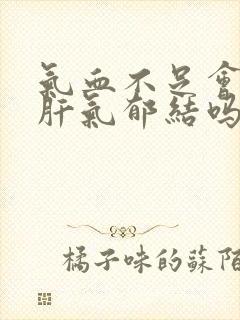 氣血不足會
肝氣郁結嗎
橘子味的蘇陌